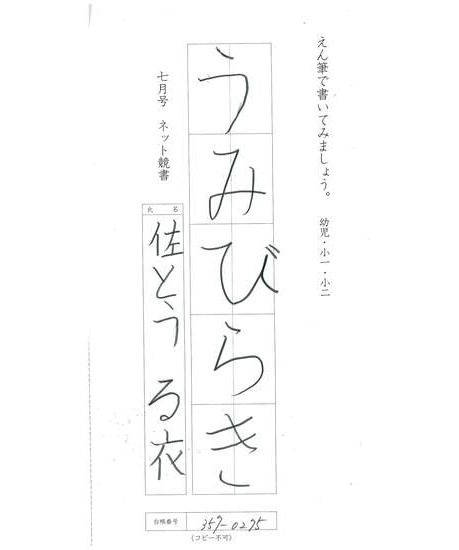 えん筆で書いてみましょう。
幼児・小一・小二
うみびらき
七月号 ネット競書
氏名
佐とう る衣
台帳番号 357-0275
(コピー不可)